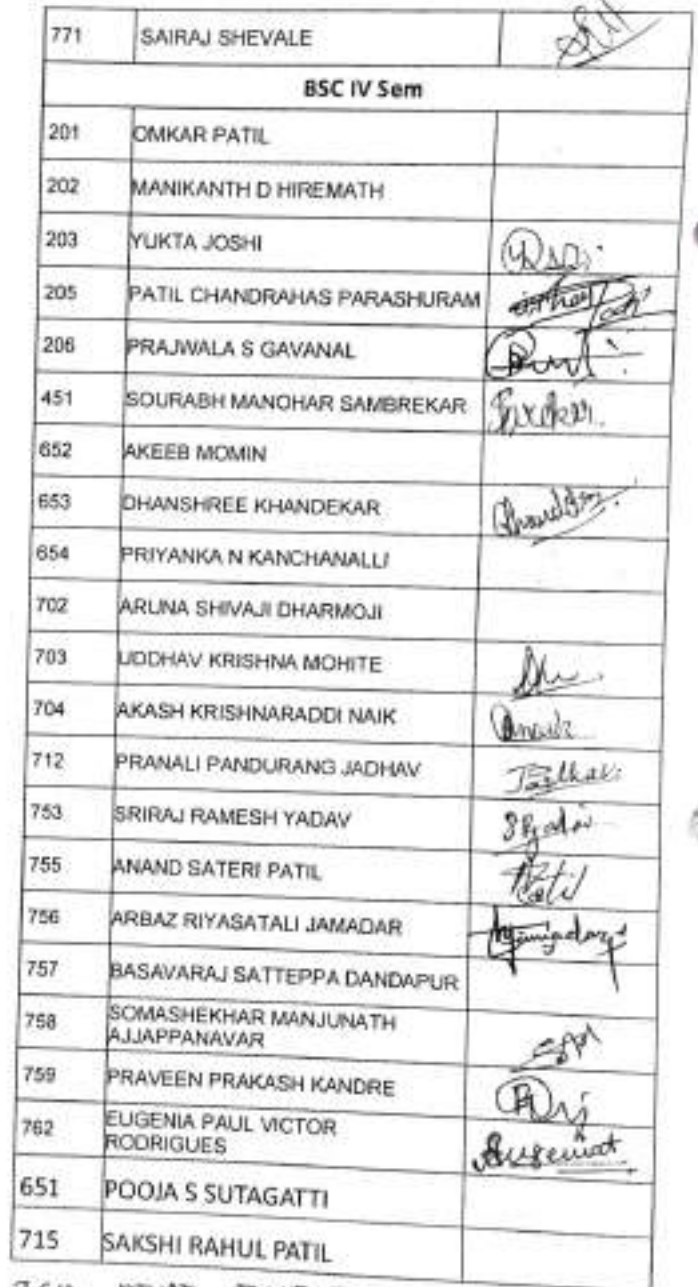 771 SAIRAJ SHEVALE
BSC IV Sem
201 OMKAR PATIL
202 MANIKANTH D HIREMATH
203 YUKTA JOSHI
205 PATIL CHANDRAHAS PARASHURAM
206 PRAJWALA S GAVANAL
451 SOURABH MANOHAR SAMBREKAR
652 AKEEB MOMIN
653 DHANSHREE KHANDEKAR
654 PRIYANKA N KANCHANALLI
702 ARUNA SHIVAJI DHARMOJI
703 UDDHAV KRISHNA MOHITE
704 AKASH KRISHNARADDI NAIK
712 PRANALI PANDURANG JADHAV
753 SRIRAJ RAMESH YADAV
755 ANAND SATERI PATIL Patil
756 ARBAZ RIYASATALI JAMADAR
757 BASAVARAJ SATTEPPA DANDAPUR
758 SOMASHEKHAR MANJUNATH
AJJAPPANAVAR
759 PRAVEEN PRAKASH KANDRE
762 EUGENIA PAUL VICTOR
RODRIGUES
651 POOJA S SUTAGATTI
715 SAKSHI RAHUL PATIL